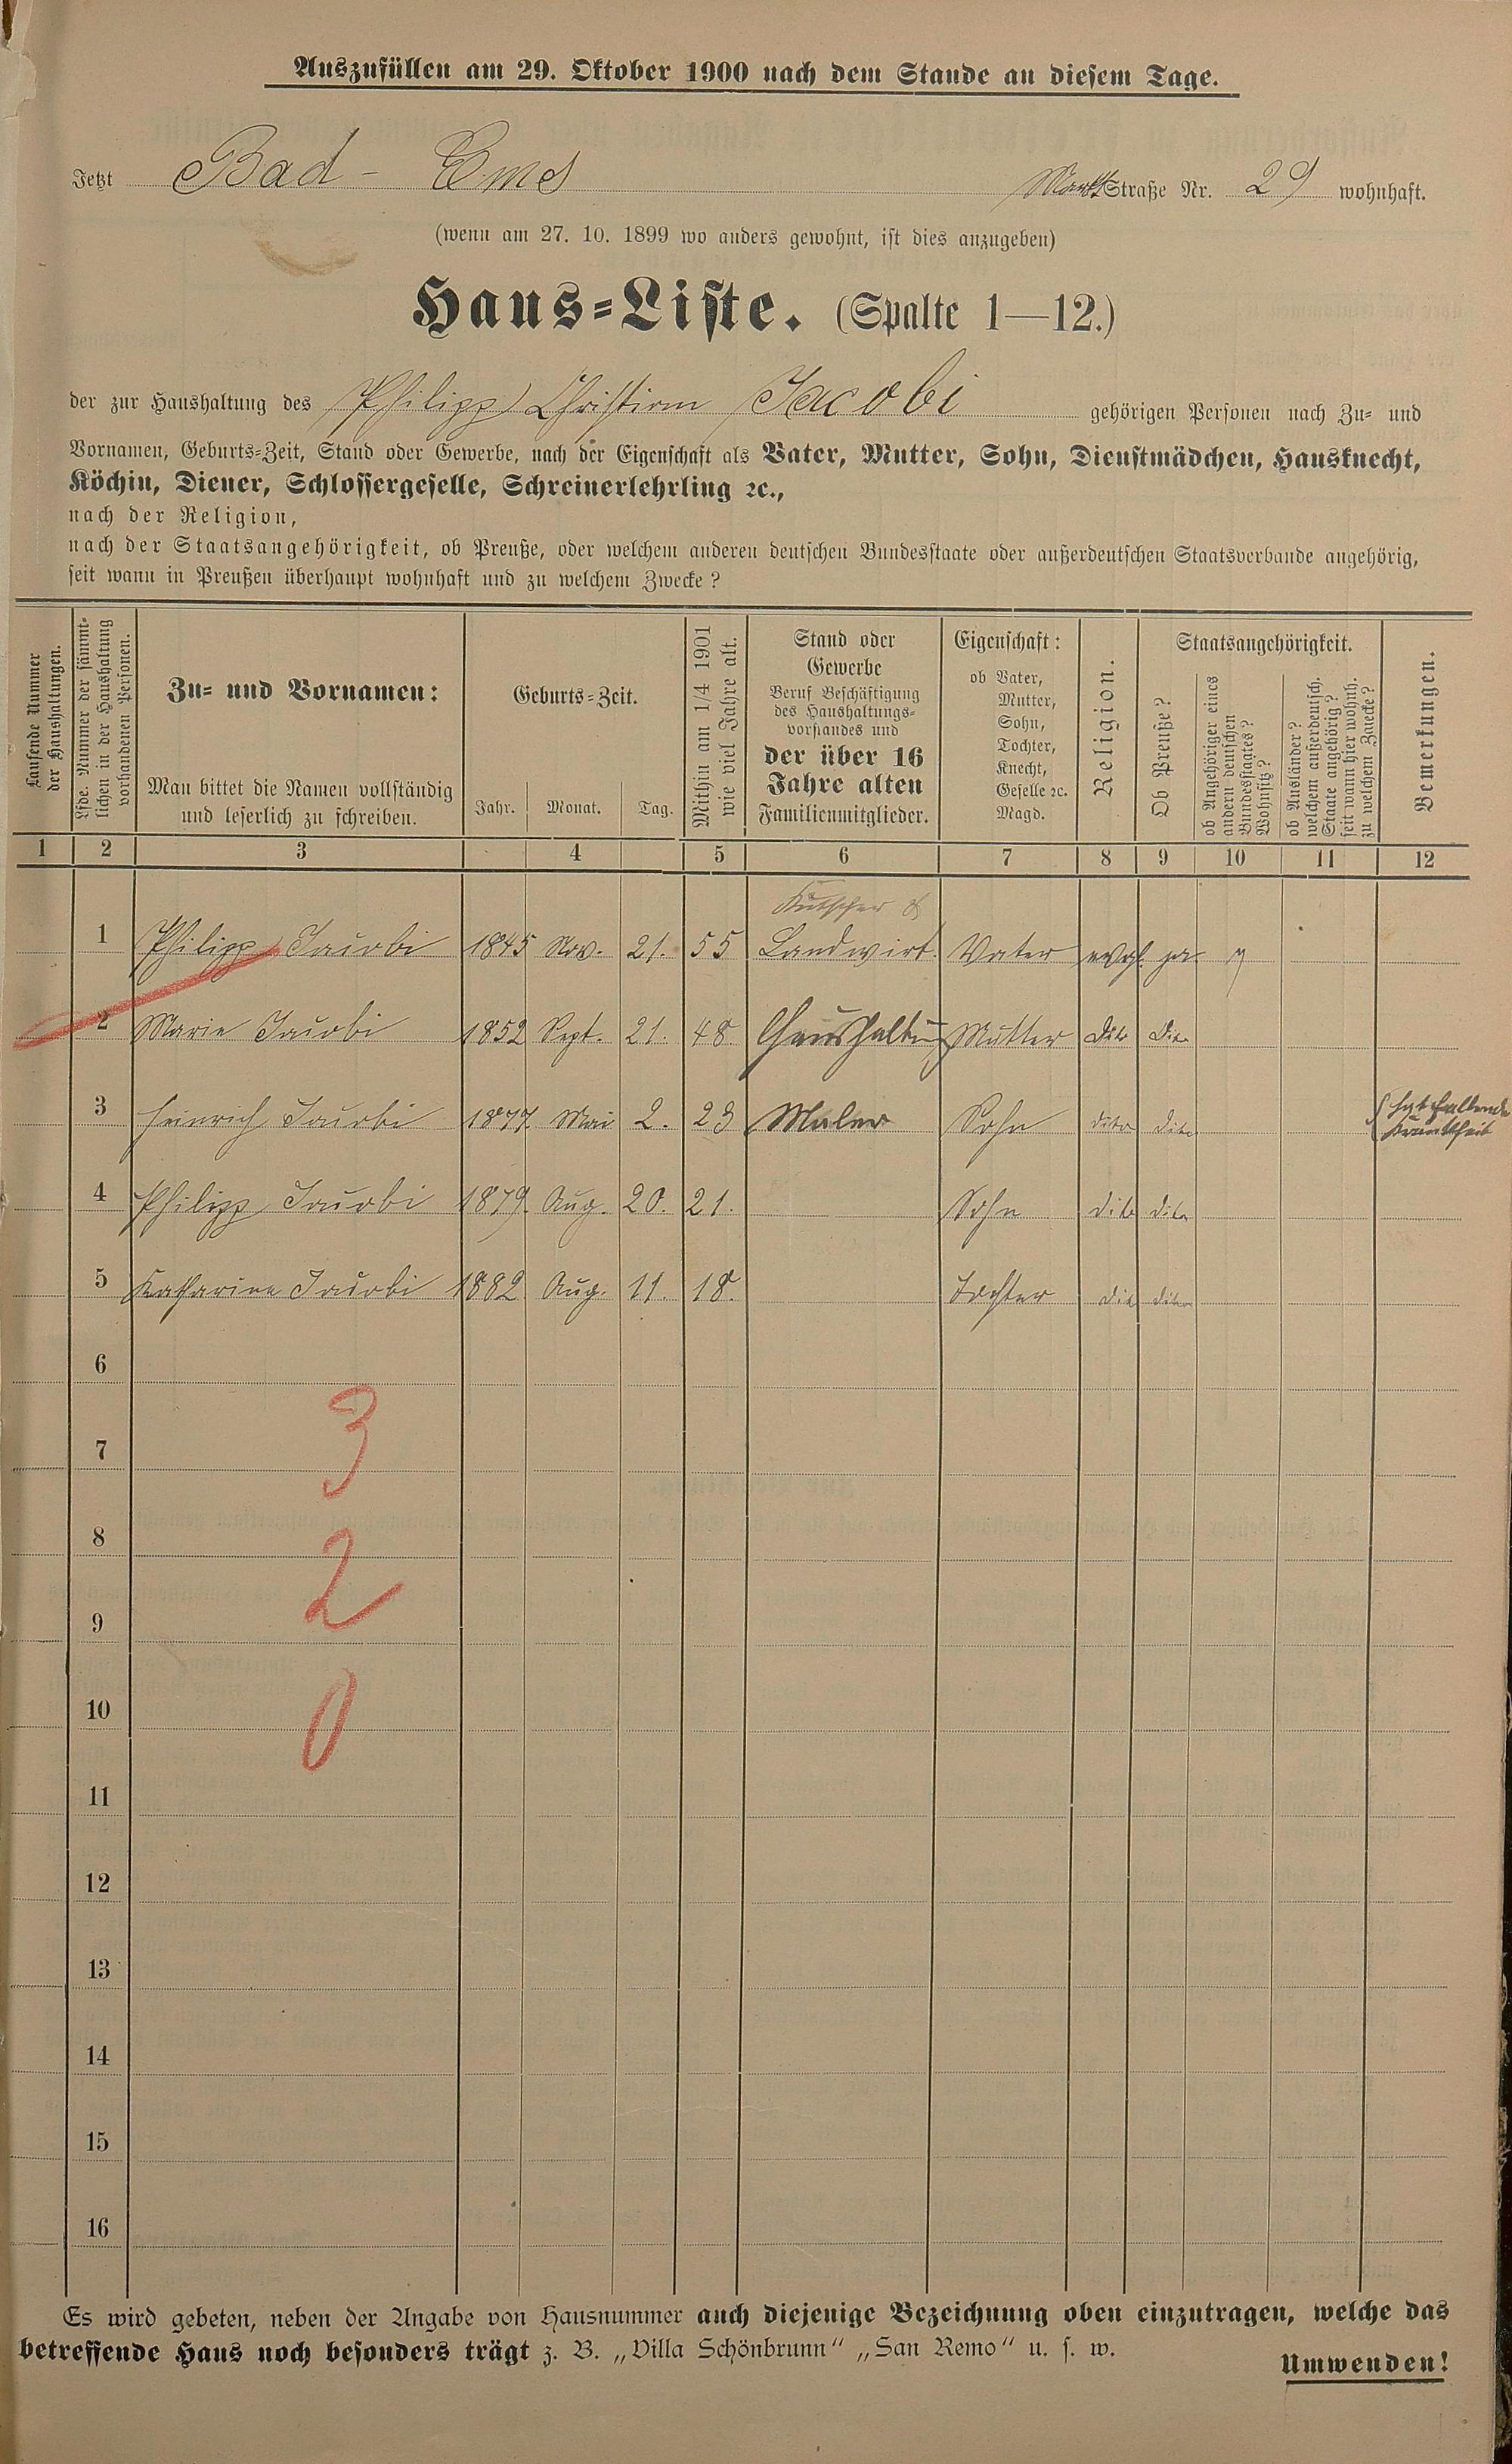 Auszufüllen am 29. Oktober 1900 nach dem Stande an diesem Tage.
Jetzt Bad-Ems Markt Straße Nr. 29 wohnhaft.
(wenn am 27. 10. 1899 wo anders gewohnt, ist dies anzugeben)
Haus-Liste. (Spalte 1—12.)
der zur Haushaltung des Philipp Christian Jacobi gehörigen Personen nach Zu- und
Vornamen, Geburts-Zeit, Stand oder Gewerbe, nach der Eigenschaft als Vater, Mutter, Sohn, Dienstmädchen, Hausknecht,
Köchin, Diener, Schlossergeselle, Schreinerlehrling ꝛc.,
nach der Religion,
nach der Staatsangehörigkeit, ob Preuße, oder welchem anderen deutschen Bundesstaate oder außerdeutschen Staatsverbande angehörig,
seit wann in Preußen überhaupt wohnhaft und zu welchem Zwecke?
Laufende Nummer
der Haushaltungen.
Lfde. Nummer der sämmt-
lichen in der Haushaltung
vorhandenen Personen.
Zu- und Vornamen:
Man bittet die Namen vollständig
und leserlich zu schreiben.
Geburts-Zeit.
Jahr. Monat. Tag.
Mithin am 1/4 1901
wie viel Jahre alt.
Stand oder
Gewerbe
Beruf Beschäftigung
des Haushaltungs-
vorstandes und
der über 16
Jahre alten
Familienmitglieder.
Eigenschaft:
ob Vater,
Mutter,
Sohn,
Tochter,
Knecht,
Geselle ꝛc.
Magd.
Religion.
Staatsangehörigkeit.
Ob Preuße?
ob Angehöriger eines
andern deutschen
Bundesstaates?
Wohnsitz?
ob Ausländer?
welchem außerdeutsch.
Staate angehörig?
seit wann hier wohnh.
zu welchem Zwecke?
Bemerkungen.
1 2 3 4 5 6 7 8 9 10 11 12
Kutscher &
1 Philipp Jacobi 1845 Nov. 21. 55 Landwirt. Vater evgl. ja
2 Marie Jacobi 1852 Sept. 21. 48. Haushaltung Mutter dito dito
3 Heinrich Jacobi 1877. Mai 2. 23 Maler Sohn dito dito hat fallende
Krankheit
4 Philipp Jacobi 1879. Aug. 20. 21. Sohn dito dito
5 Katharina Jacobi 1882 Aug. 11. 18. Tochter dito dito
6
3
7
8
2
9
10
0
11
12
13
14
15
16
Es wird gebeten, neben der Angabe von Hausnummer auch diejenige Bezeichnung oben einzutragen, welche das
betreffende Haus noch besonders trägt z. B. „Villa Schönbrunn“ „San Remo“ u. s. w.
Umwenden!